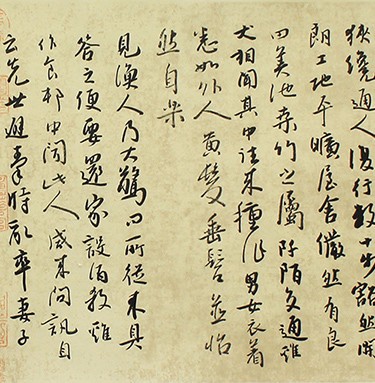 狹纔通人復行數十步豁然開
朗土地平曠屋舍儼然有良
田美池桑竹之屬阡陌交通雞
犬相聞其中往來種作男女衣著
悉如外人黃髮垂髫並怡
然自樂
見漁人乃大驚問所從來具
答之便要還家設酒殺雞
作食邨中聞此人咸來問訊自
云先世避秦時亂率妻子